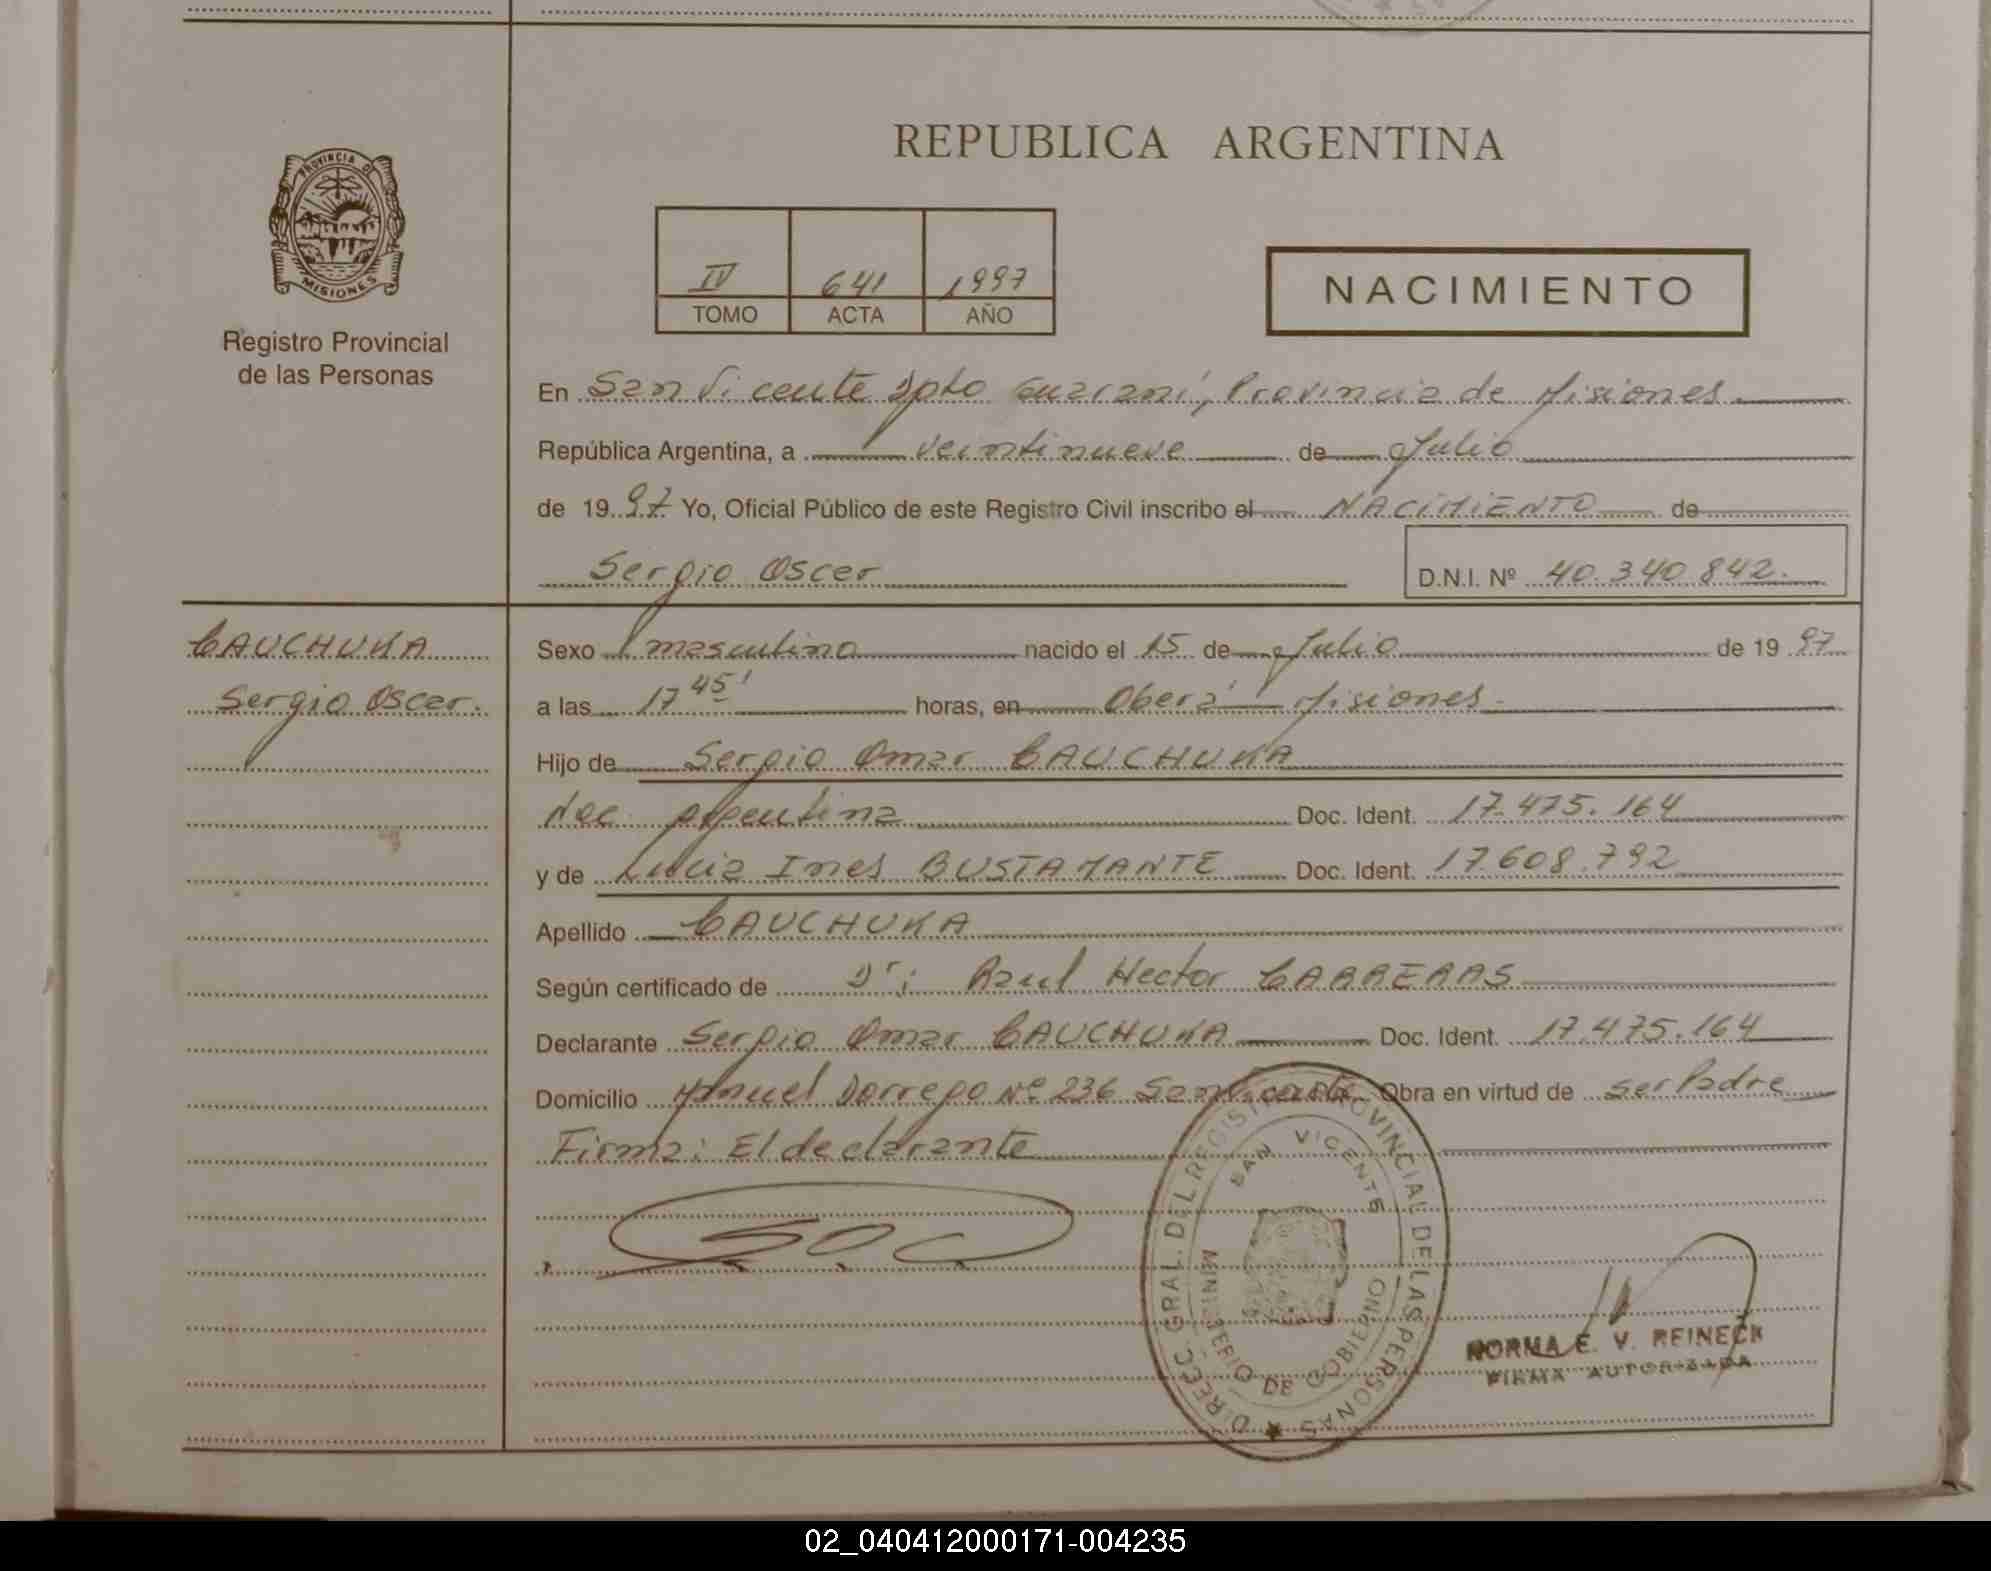 REPUBLICA ARGENTINA
PROVINCIA D
MISIONES
Registro Provincial
de las Personas
IV 641 1997
TOMO ACTA AÑO
NACIMIENTO
En San Vicente Dpto Guaraní, Provincia de Misiones
República Argentina, a veintinueve de Julio
de 1997 Yo, Oficial Público de este Registro Civil inscribo el NACIMIENTO de
Sergio Oscar D.N.I. Nº 40.340.842.
CAUCHUKA
Sergio Oscar.
Sexo masculino nacido el 15 de Julio de 1997
a las 17 45' horas, en Oberá Misiones.
Hijo de Sergio Omar CAUCHUKA
Nac. Argentina Doc. Ident. 17.475.164
y de Lucia Ines BUSTAMANTE Doc. Ident. 17.608.792
Apellido CAUCHUKA
Según certificado de Dr: Raul Hector CARRERAS
Declarante Sergio Omar CAUCHUKA Doc. Ident. 17.475.164
Domicilio Manuel Dorrego Nº 236 San Vicente Obra en virtud de ser Padre
Firma: El declarante
S.O.C
DIREC. GRAL. DEL REGISTRO PROVINCIAL DE LAS PERSONAS
SAN VICENTE
MINISTERIO DE GOBIERNO
NORMA E. V. REINECK
FIRMA AUTORIZADA
02_040412000171-004235